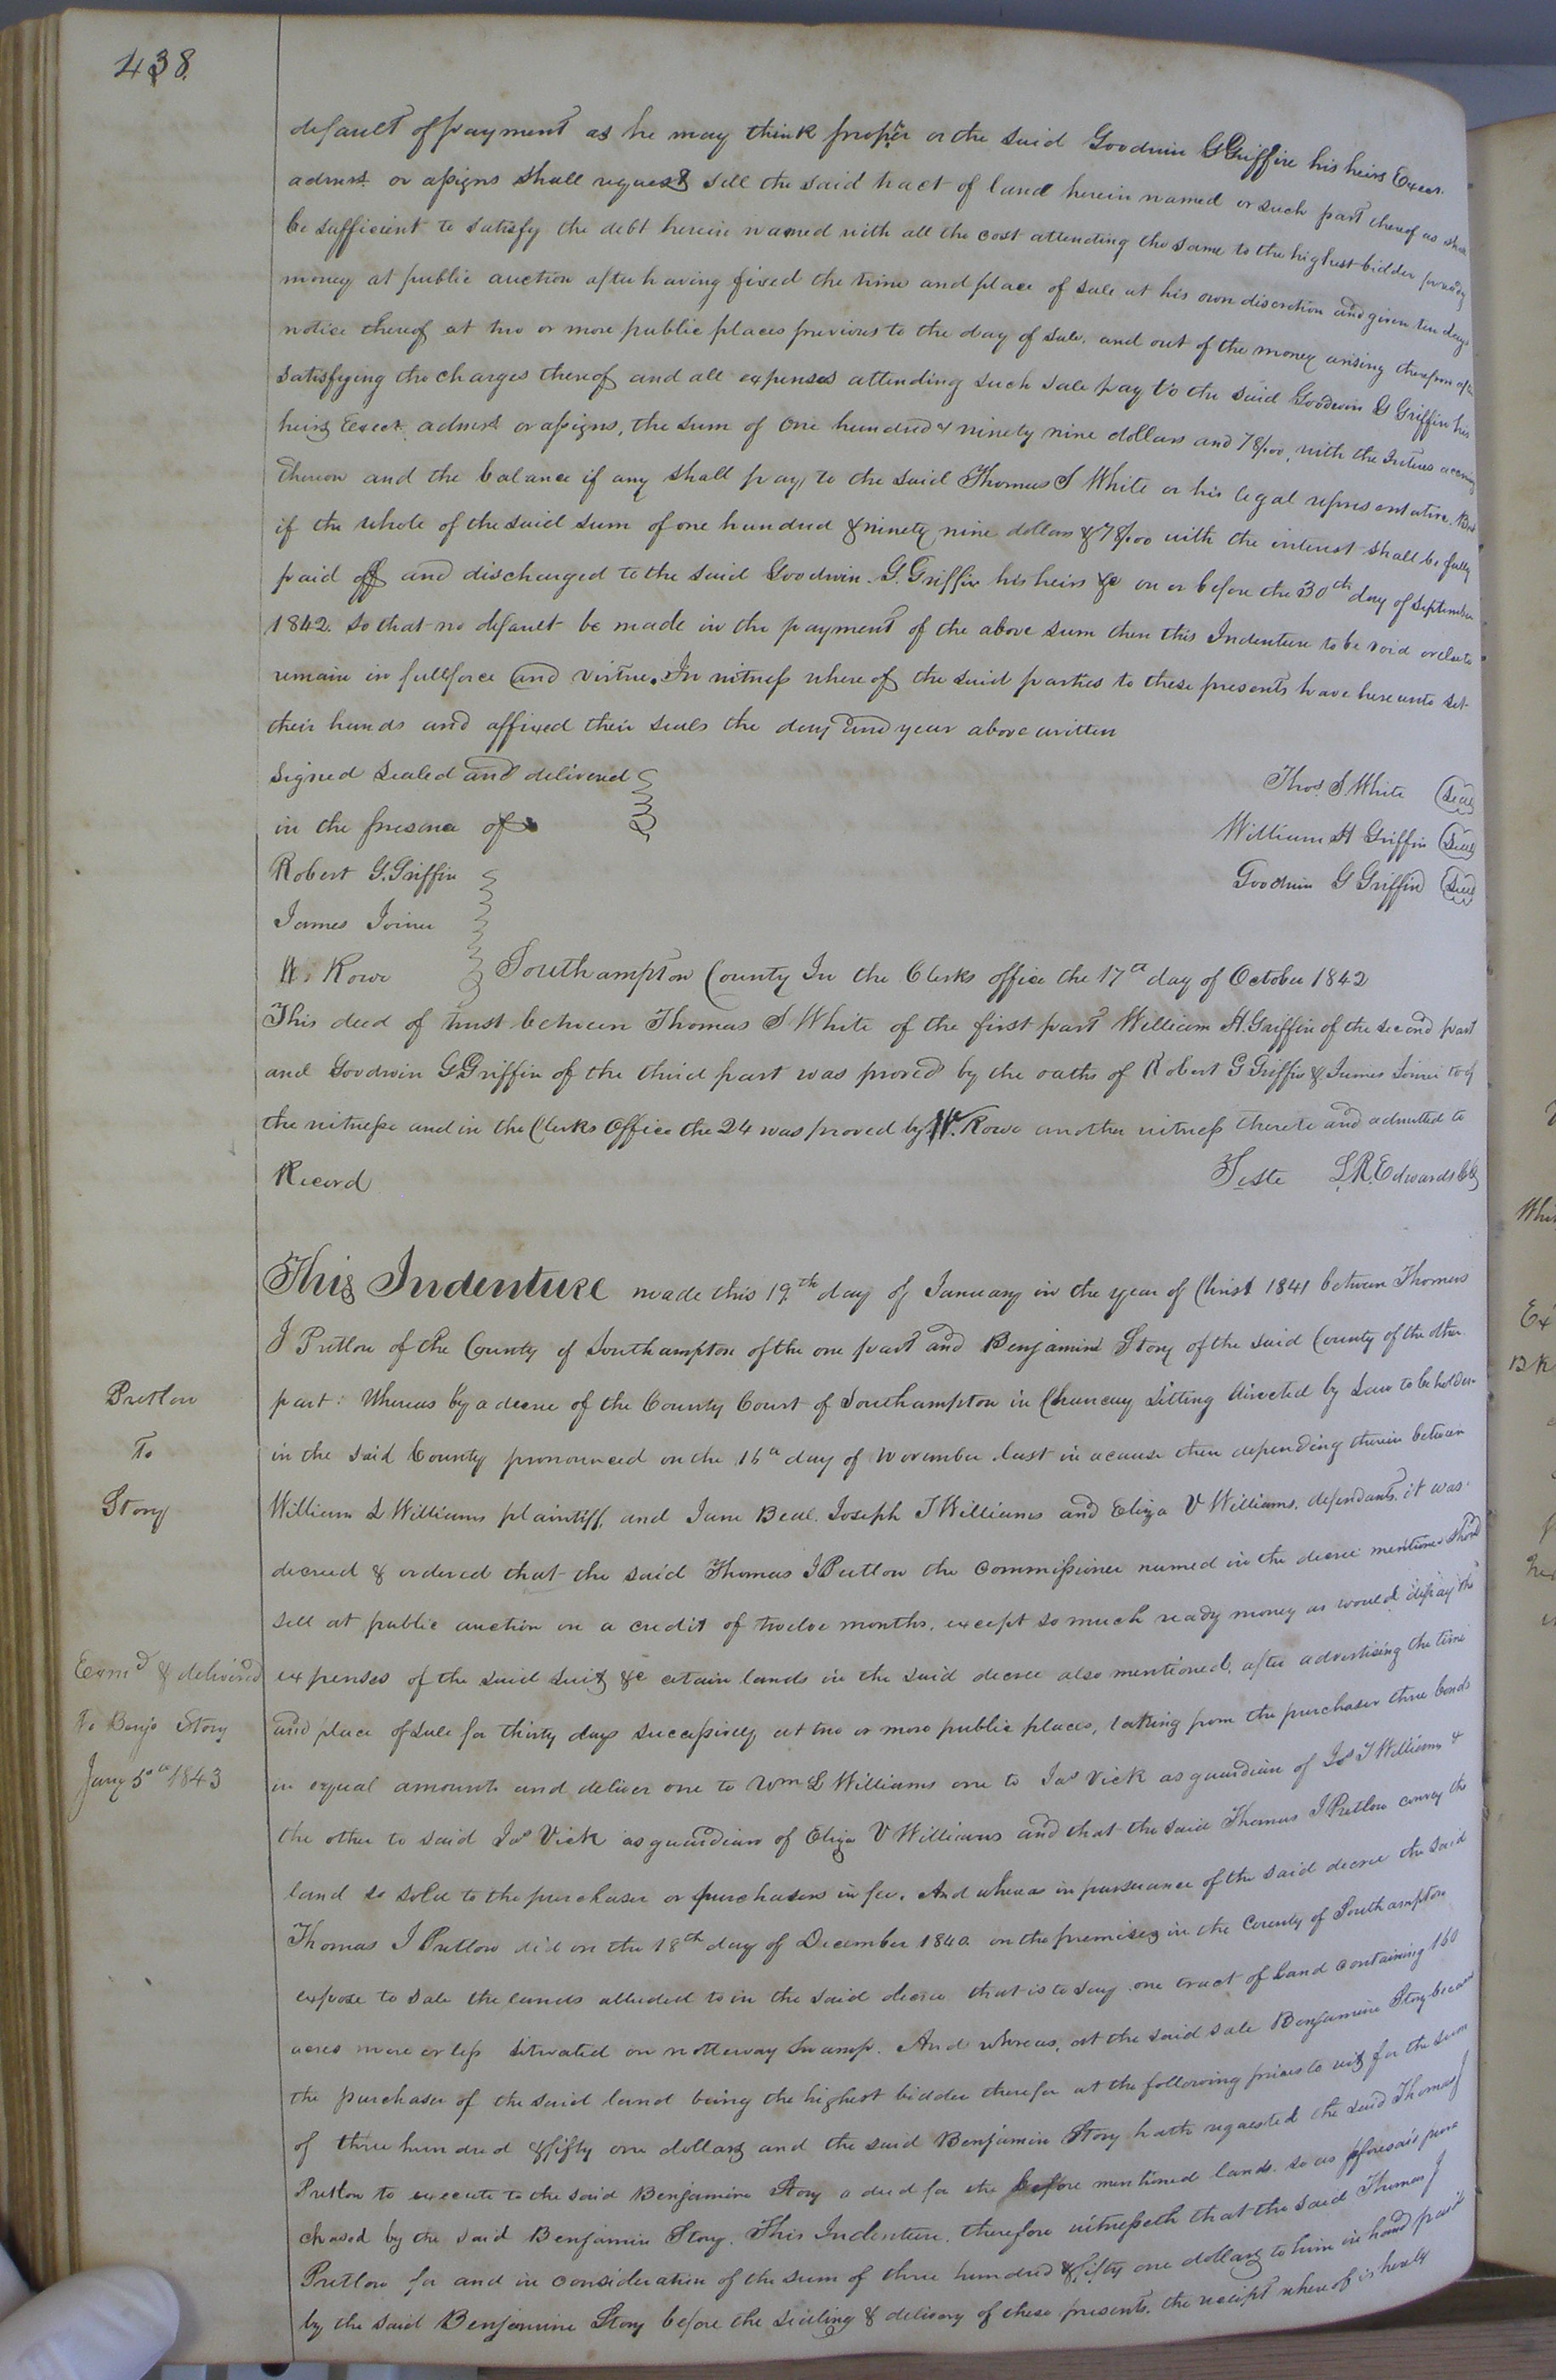 438
default of payment as he may think proper or the said Goodwin G Griffin his heirs Execr.
admrs. or assigns shall request sell the said tract of land herein named or such part thereof as shall
be sufficient to satisfy the debt herein named with all the cost attending the same to the highest bidder for ready
money at public auction after having fixed the time and place of sale at his own discretion and given ten days
notice thereof at two or more public places previous to the day of sale. and out of the money arising therefrom after
satisfying the charges thereof and all expenses attending such sale pay to the said Goodwin G Griffin his
heirs Execr. admrs or assigns, the sum of One hundred & ninety nine dollars and 78/100, with the Interes accruing
thereon and the balance if any shall pay to the said Thomas S White or his legal representative. But
if the whole of the said sum of one hundred & ninety nine dollars & 78/100 with the interest shall be fully
paid off and discharged to the said Goodwin. G. Griffin his heirs &c on or before the 30th day of September
1842. so that no default be made in the payment of the above sum then this Indenture to be void or else to
remain in full force and virtue. In witness where of the said parties to these presents have hereunto set
their hands and affixed their seals the day and year above written
signed sealed and delivered
in the presence of
Thos. S White Seal
William H Griffin Seal
Goodwin G Griffin Seal
Robert G. Griffin
James Joiner
W. Rowe
Southampton County In the Clerks office the 17th day of October 1842
This deed of trust between Thomas S White of the first part William H. Griffin of the second part
and Goodwin G Griffin of the third part was proved by the oaths of Robert G Griffin & James Joiner two of
the witness and in the Clerks Office the 24 was proved by W. Rowe another witness thereto and admitted to
Record
Teste L. R. Edwards Clk
This Indenture made this 19th day of January in the year of Christ 1841 between Thomas
J Pretlow of the County of Southampton of the one part and Benjamin Story of the said County of the other
part: Whereas by a decree of the County Court of Southampton in Chancery Sitting directed by Law to be holden
in the said County pronounced on the 16th day of November last in a cause then depending therein between
William L Williams plaintiff, and Jane Beal. Joseph T Williams and Eliza V Williams. defendants. it was
decreed & ordered that the said Thomas J Pretlow the commissioner named in the decree mentioned should
sell at public auction on a credit of twelve months. except so much ready money as would defray the
expenses of the said suit &c certain lands in the said decree also mentioned, after advertising the time
and place of sale for thirty days successively at two or more public places, taking from the purchaser three bonds
in equal amounts and deliver one to Wm L Williams one to Jas Vick as guardian of Jos T Williams &
the other to said Jas Vick as guardian of Eliza V Williams and that the said Thomas J Pretlow convey the
land so sold to the purchaser or purchasers in fee. And whereas in pursuance of the said decree the said
Thomas J Pretlow did on the 18th day of December 1840. on the premises in the County of Southampton
expose to sale the lands alluded to in the said decree that is to say one tract of Land containing 160
acres more or less situated on nottoway swamp. And whereas, at the said sale Benjamin Story became
the purchaser of the said land being the highest bidder therefor at the following prices to wit for the sum
of three hundred & fifty one dollars and the said Benjamin Story hath requested the said Thomas J
Pretlow to execute to the said Benjamin Story a deed for the before mentioned lands. so as aforesaid pur
chased by the said Benjamin Story. This Indenture. therefore witnesseth that the said Thomas J
Pretlow for and in consideration of the sum of three hundred & fifty one dollars to him in hand paid
by the said Benjamin Story before the sealing & delivery of these presents. the receipt where of is hereby
Pretlow
To
Story
Exmd & delivered
To Benja Story
Jany 5th 1843